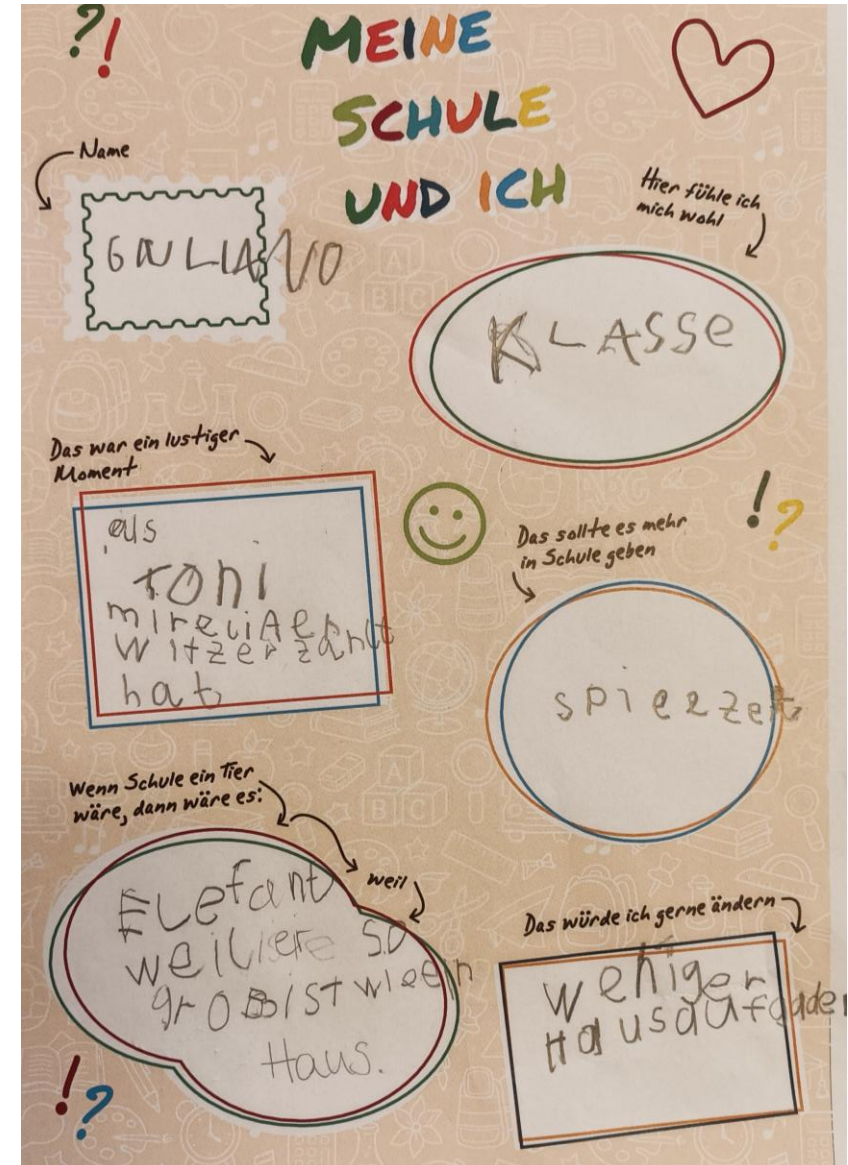 ?!
MEINE
SCHULE
UND ICH
Name
GIULIANO
Hier fühle ich
mich wohl
KLASSE
Das war ein lustiger
Moment
als
toni
mir
witz erzählt
hat
Das sollte es mehr
in Schule geben
!?
spielzeit
Wenn Schule ein Tier
wäre, dann wäre es:
weil
ELefant
weil so
groß ist wie ein
Haus.
Das würde ich gerne ändern
weniger
Hausaufgaben
!?